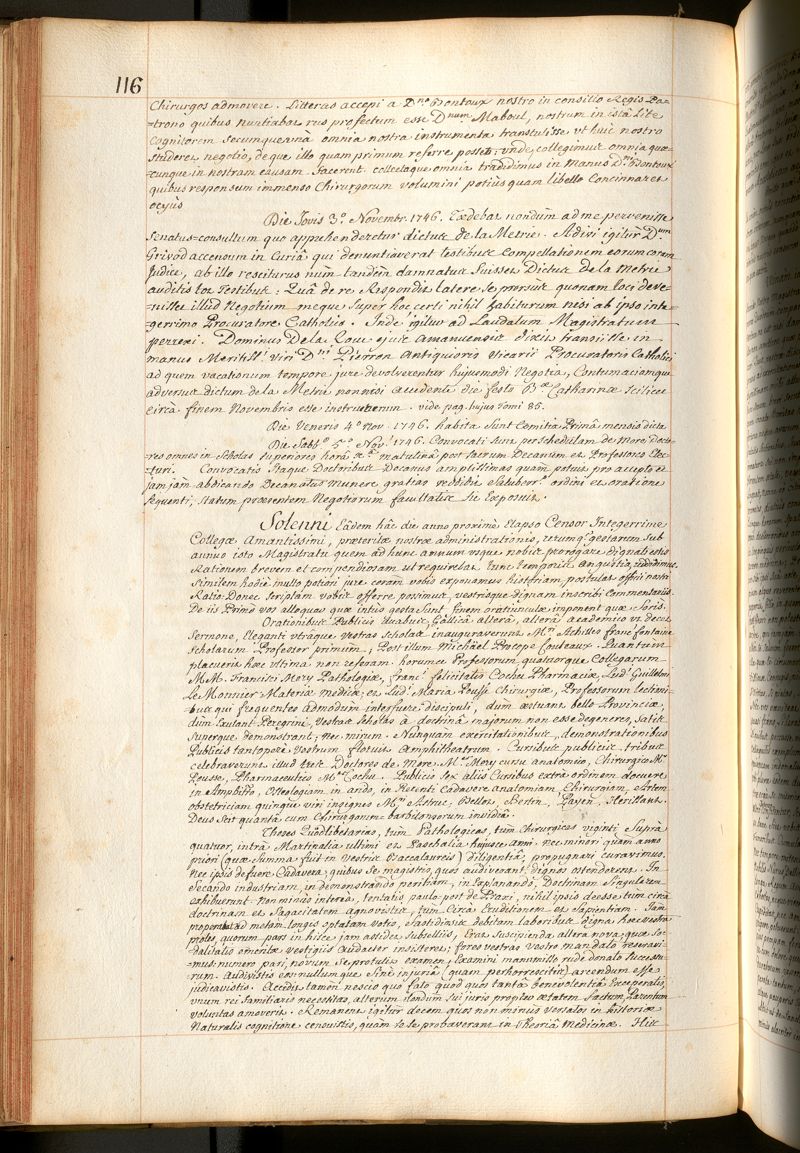 116
Chirurgos admovere. Litteras accepi a D.no Dontoux nostro in consilio Regis Pa-
=trono quibus nuntiabat rus profectum esse D.num Maboul, nostrum in istâ Lite
Cognitorem secumque omnia nostra instrumenta transtulisse ut huic nostro
studeret negotio, deque illo quam primum referre posset, unde collegimus omnia quæ-
cunque in nostram causam facerent. collectaque omnia tradidimus in manus D.ni Dontoux
quibus responsum immenso Chirurgorum volumini potius quam libello Concinnaret
ocyus
Die Jovis 3.o Novembr. 1746. Exdebat nondum ad me pervenisse
Senatus=consultum quo apprehenderetur dictus de la Metrie. Adivi igitur D.um
Grivod accensum in Curiâ qui denuntiaverat testibus Compellationem eorum coram
Judice, ab illo resciturus num tandem damnatus fuisset Dictus de la Metrie
auditis tot Testibus: Quâ de re Respondit latere se prorsus quonam loci deve-
nisset illud Negotium meque super hoc certi nihil habiturum nisi ab ipso inte-
=gerrimo Procuratore Catholico. Inde igitur ad Laudatum Magistratum
perrexi. Dominus De la Roue ejus amanuensis dixit transiisse in
manus Meritiss.i viri D.ni Pierron Antiquioris vicarii Procuratoris Catholici
ad quem vacationum tempore jure devolverentur hujusmodi Negotia, Contumaciamque
adversus dictum de la Metrie nonnisi accedente die festo B.æ Catharinæ scilicet
circa finem Novembris esse instruendum. vide pag. hujus Tomi 85.
Die Veneris 4.o Nov. 1746. habita sunt Comitia Primâ mensis dicta
Die Sabb.o 5.o Nov. 1746. Convocati sunt per schedulam de More docto-
res omnes in Scholas superiores horâ matutinâ post sacrum Decanum et Professores Elec-
=turi. Convocatis itaque Doctoribus Decanus amplissimas quam potuit pro accepto et
jam jam abdicando Decanatus munere gratias reddidit Saluberr.o ordini et oratione
sequenti, statum præsentem Negotiorum facultatis sic Exposuit.
Solenni Eâdem hâc die anno proximè Elapso Censor Integerrime
Collegæ Amantissimi, præteritæ nostræ administrationis, rerumq. gestarum sub
annuo isto Magistratu quem ad hunc annum usque nobis prorogare dignati estis
Rationem brevem et compendiosam ut requirebat tunc temporis Angustia, reddidimus
Similem hodie multo potiori jure coram vobis exponamus historiam, postulat officii nostri
Ratio Donec scriptam vobis offerre possimus, vestrisque dignam inscribi Commentariis.
De iis Primò vos alloquar quæ intus gesta sunt finem oratiunculæ imponent quæ foris.
Orationibus Publicis duabus, Gallicâ alterâ, alterâ academico ut decet
Sermone, Eleganti utrâque vestras scholas inauguraverunt M.rs Achilles franc fontaine
scholarum Professor primum; Post illum Michaël Procope Couteaux. Quantum
placuerit hæc ultima non referam. horumce Professorum quatuorque Collegarum
MM. Francisci Mery Pathologiæ, franc. felicitatis Cochu Pharmaciæ, Lud. Guillelmi
Le Monnier Materiæ medicæ, et Lud. Maria Pousse Chirurgiæ, Professorum lectioni-
=bus qui frequentes admodum interfuere discipuli, dum æstuant bello Provinciæ,
dum Exulant Peregrini, Vestras scholas à doctrinâ majorum non esse degeneres, satis
superque demonstrant; nec mirum. Nunquam exercitationibus, demonstrationibus
Publicis tantopere vestrum floruit Amphitheatrum. Cursibus publicis tribus
celebraverunt illud tres Doctores de More M.r Mery cursu anatomico, Chirurgico M.r
Pousse, Pharmaceutico M.r Cochu. Publicis sex aliis Cursibus extrà ordinem docuere
in Amphith.o, Osteologiam in ando, in Recenti cadavere anatomiam, Chirurgiam, Artem
obstetriciam quinque viri insignes M.rs Astruc, Bellot, Bertin, Payen, Herissant.
Deus scit quantâ cum Chirurgorum barbitonsorum invidiâ.
Theses Quodlibetarias, tum Pathologicas, tum chirurgicas viginti Suprà
quatuor, intrà Martinalia ultimi et Paschalia hujusce anni. nec minori quam anno
priori (quæ summa fuit in vestris Baccalaureis) diligentiâ, propugnari curavimus.
Nec ipsis defuere Cadavera, quibus se magistris, quos audiverant dignos ostenderent. In
Secando industriam, in demonstrando peritiam, in Explanando, Doctrinam Singularem
exhibuerunt. Non minus interea, tentatis paulo post de Praxi, nihil ipsis deesse tum circa
doctrinam et Sagacitatem agnovistis, tum Circa Eruditionem et sapientiam. Iam
properabat ad metam longis optatam votis, vestrisque debitam laboribus digna hæc vestra
proles, quorum pars in hisce jam assidet Subselliis, Erat Suscipienda altera nova; quæ So-
dalitatis emeritæ vestigiis audacter insisteret; fores vestras vestro mandato reseravi-
=mus; numero pari, novum Se protulit examen; Examini manumisso rude donato Successu-
rum. Audivistis eos nullumque sinè injuriâ (quam perhorrescitis) arcendum esse
judicavistis. Accidit tamen nescio quo fato quod quos tantâ benevolentiâ Exceperatis,
unum rei familiaris necessitas, alterum nondum sui juris propter ætatem factum, Parentum
voluntas amoverit. Remanent igitur decem quos non minus versatos in historiæ
Naturalis cognitione censuistis, quàm se se probaverant in Theoriâ Medicinæ. Huic